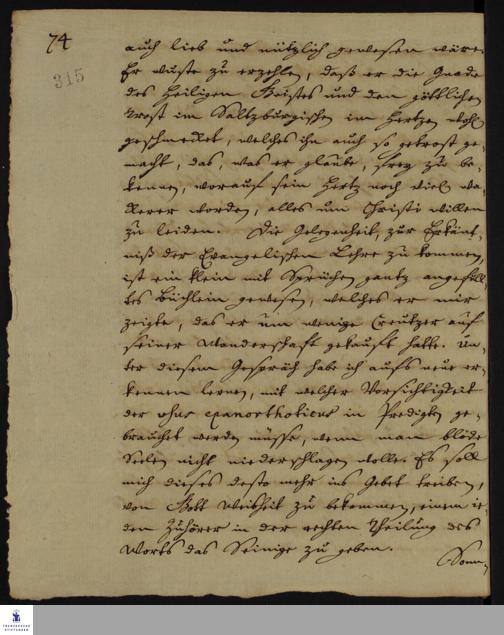 74
315
auch lieb und nützlich gewesen wäre.
Er wuste zu erzehlen, daß er die Gnade
des Heiligen Geistes und den göttlichen
Trost im Saltzburgischen im Hertzen wohl
geschmecket, welches ihn auch so getrost ge-
macht, das, was er glaube, frey zu be-
kennen, worauf sein Hertz noch viel wa-
ckerer worden, alles um Christi willen
zu leiden. Die Gelegenheit, zur Erkänt-
niß der Evangelischen Lehre zu kommen,
ist ein klein mit Sprüchen gantz angefüll-
tes Büchlein gewesen, welches er mir
zeigte, das er um wenige Creutzer auf
seiner Wanderschaft gekauft hatte. Un-
ter diesem Gespräch habe ich aufs neue er-
kennen lernen, mit welcher Vorsichtigkeit
der usus epanorthoticus in Predigten ge-
brauchet werden müsse, wenn man blöde
Seelen nicht niederschlagen wolle. Es soll
mich dieses desto mehr ins Gebet treiben,
von Gott Weisheit zu bekommen, einem ie-
den Zuhörer in der rechten Theilung des
Worts das Seinige zu geben.
Sonn-
FRANCKESCHE
STIFTUNGEN